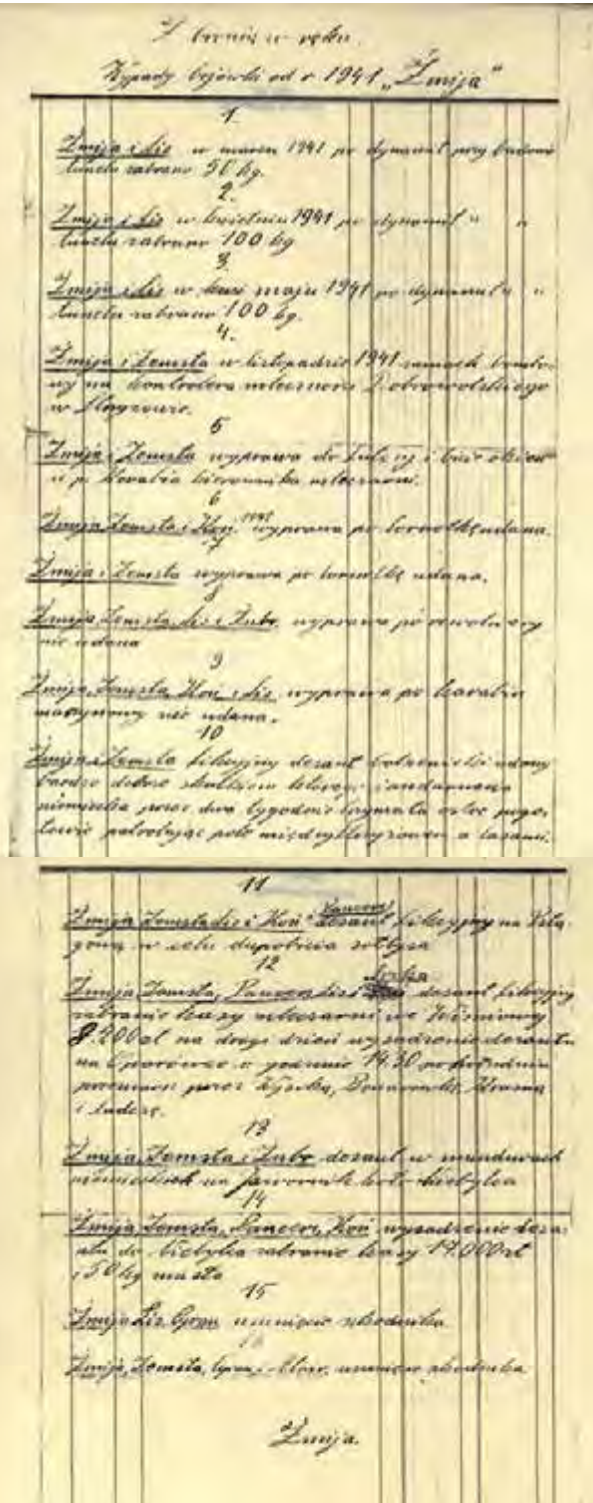 Z bronią w ręku.
Wypady bojówki od r 1941 „Żmija"
1
Żmija i Lis w marcu 1941 po dynamit przy budowie
tunelu zabrano 50 kg.
2.
Żmija i Lis w kwietniu 1941 po dynamit " "
tunelu zabrano 100 kg
3.
Żmija i Lis w maju 1941 po dynamit " "
tunelu zabrano 100 kg.
4.
Żmija i Zemsta w listopadzie 1941 zamach bombo-
wy na kontrolera mleczarni Dobrowolskiego
w Strzyżowie.
5
Żmija i Zemsta wyprawa do i
u p. Kowala kierownika mleczarni.
6
Żmija Zemsta i Koń 1942 wyprawa po udana.
7
Żmija i Zemsta wyprawa po udana.
8
Żmija, Zemsta, Lis i Żubr, wyprawa po rewolwery
nie udana
9
Żmija, Zemsta, Koń i Lis wyprawa po karabin
maszynowy nie udana.
10
Żmija i Zemsta fikcyjny desant udany
bardzo dobrze skutkiem którego żandarmeria
niemiecka przez dwa tygodnie ostre pogo-
towie patrolując pola między Strzyżowem a lasami.
11
Żmija Zemsta Lis i Koń Pancerz desant fikcyjny na
w celu sołtysa
12
Żmija, Zemsta, Pancerz Lis i desant fikcyjny
zabranie kasy mleczarni we Wiśniowy
8.200 zł na drugi dzień wysadzenie desantu
na o godzinie 19.30 po południu
przemarsz przez Wysoką,
i
13
Żmija, Zemsta i Żubr desant w mundurach
niemieckich na Jawornik koło Niebylca
14
Żmija, Zemsta, Pancerz, Koń wysadzenie desa-
ntu do Niebylca zabranie kasy 17.000 zł
i 50 kg masła
15
Żmija Lis, Grom usunięcie szkodnika
16
Żmija, Zemsta, Grom i usunięcie szkodnika
Żmija.